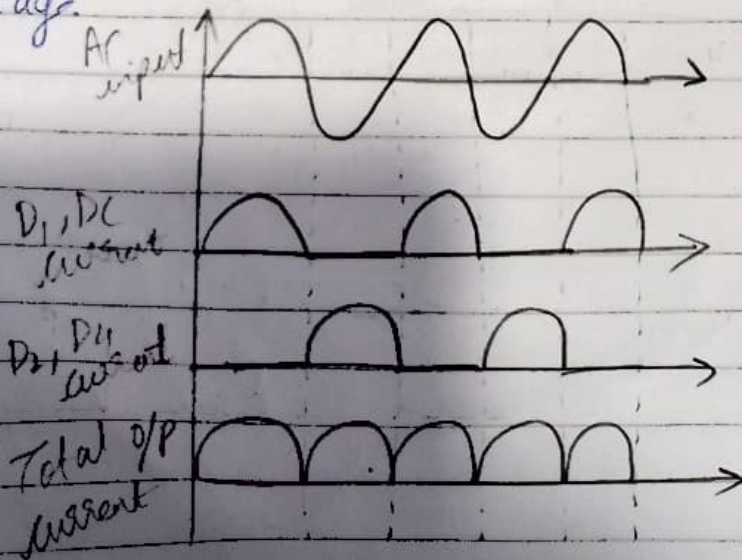 AC
input
D1, DC
current
D2, D4
current
Total O/P
current